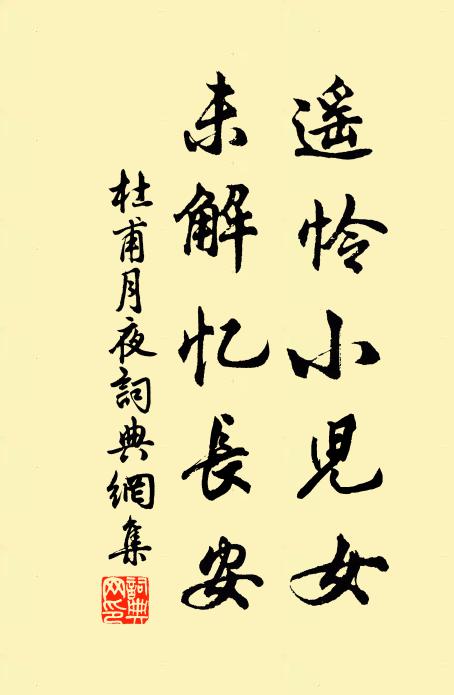 遥怜小児女
未解忆長安
杜甫月夜詞典網集